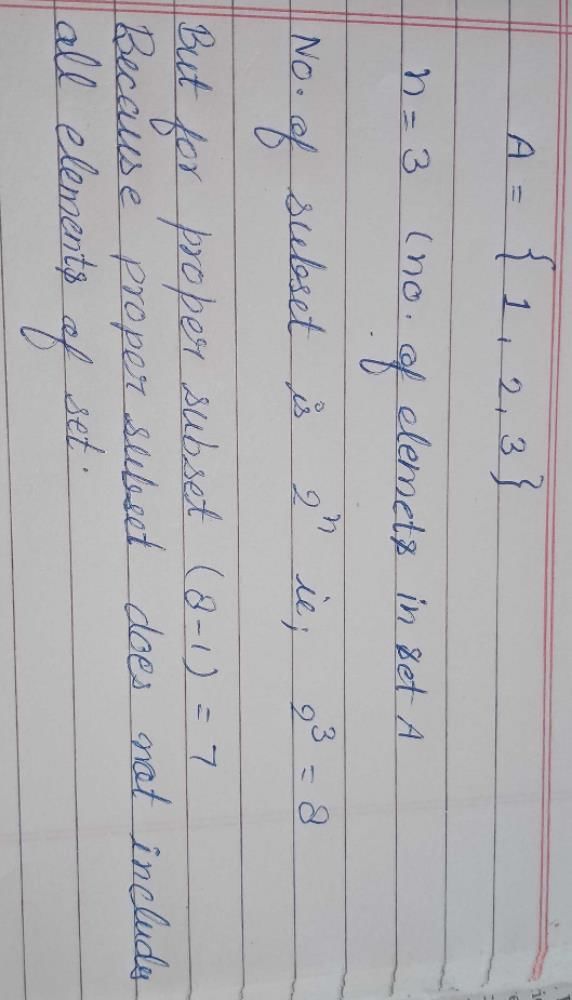 A = {1, 2, 3}
n = 3 (no. of elemets in set A
No. of subset is 2ⁿ ie; 2³ = 8
But for proper subset (8-1) = 7
Because proper subset does not includes
all elements of set.